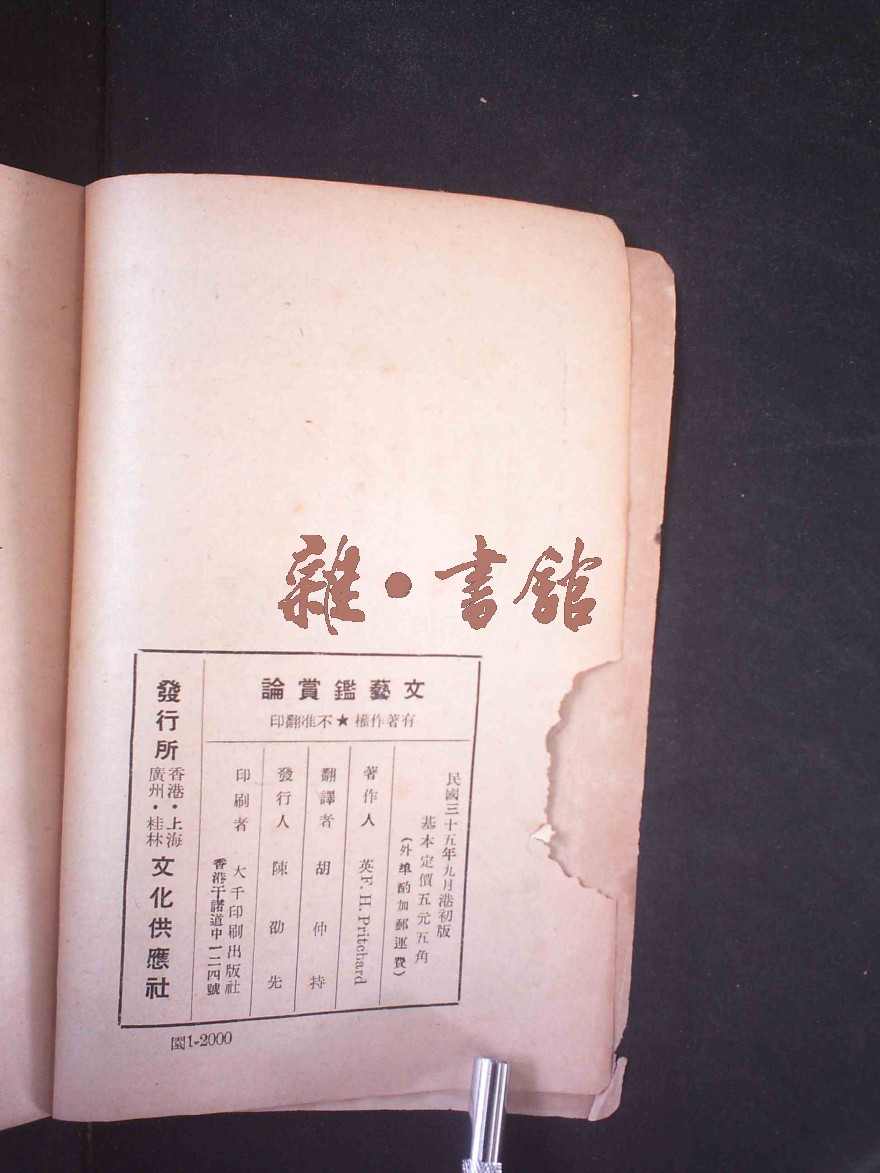 雜·書館
文藝鑑賞論
有著作權★不准翻印
民國三十五年九月港初版
基本定價五元五角
(外埠酌加郵運費)
著作人 英F. H. Pritchard
翻譯者 胡仲持
發行人 陳劭先
印刷者 大千印刷出版社
香港干諾道中一二四號
發行所 香港·上海 廣州·桂林 文化供應社
1-2000